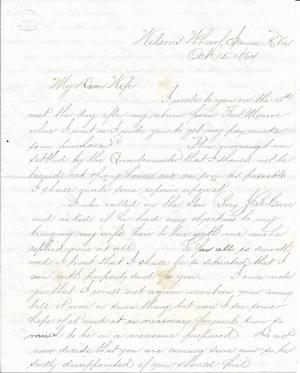 Wilson's Wharf, James R. Va
Oct. 15, 1864
My Dear Wife
I wrote to you on the 13th
inst. the day after my return from Fort Monroe
where I went in order to get my pay, make
some purchases. This morning was
settled by the Quartermaster that I should not be
turned out of my house and as soon as possible
I shall make some repairs upon it.
I also called on the Gen.
and asked if he had any objection to my
bringing my wife here to live with me and he
replied none at all. Now all is smooth,
and I trust that I shall be so situated that I
can with propriety send for you. I once wrote
you that I would not again mention your coming
till it was a sure thing, but now I see some
hope of it and it is necessary for you to know so
to be in a measure prepared. Do not
now decide that you are coming sure and so be
sadly disappointed if you should fail